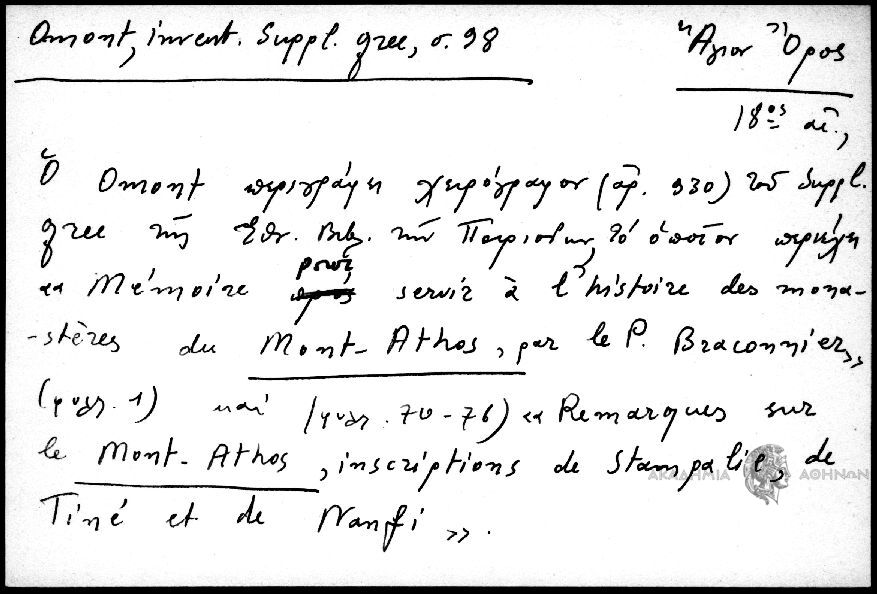 Omont, invent. Suppl. grec, σ. 98
Ἅγιον Ὄρος
18ος αἰ.,
Ὁ Omont περιγράφει χειρόγραφον (ἀρ. 930) τοῦ Suppl.
grec τῆς Ἐθν. Βιβλ. τῶν Παρισίων, τὸ ὁποῖον περιέχει
«Mémoire pour servir à l'histoire des mona-
-stères du Mont-Athos, par le P. Braconnier»
(φυλλ. 1) καὶ (φυλλ. 70-76) «Remarques sur
le Mont-Athos, inscriptions de Stampalie, de
ΑΚΑΔΗΜΙΑ ΑΘΗΝΩΝ
Tine et de Nanfi».